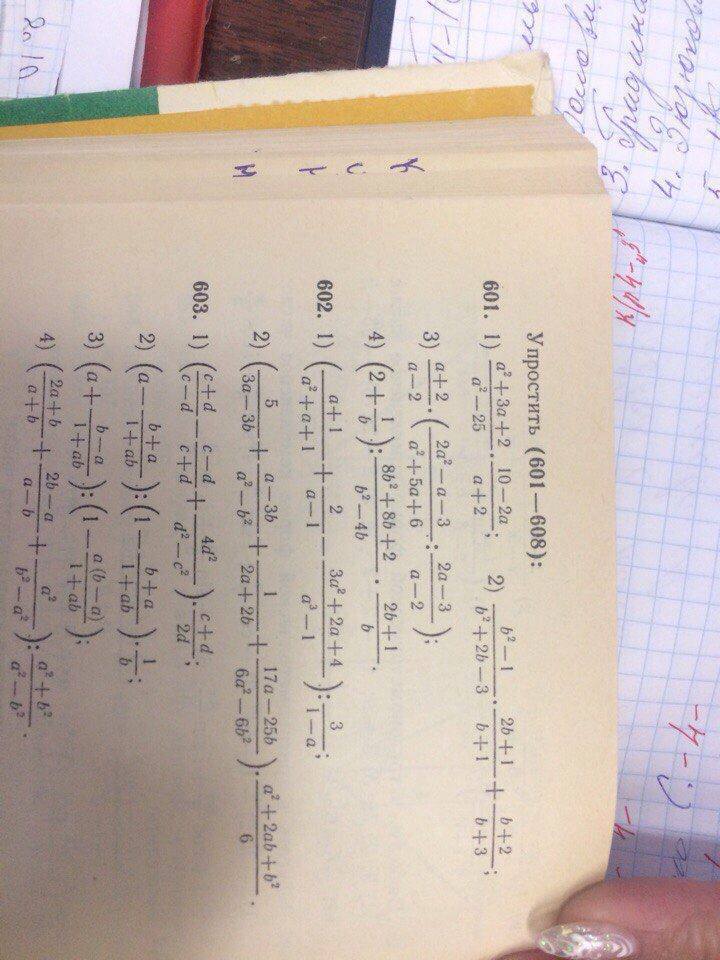 Упростить (601—608):
601. 1) (a² + 3a + 2)/(a² − 25) · (10 − 2a)/(a + 2); 2) (b² − 1)/(b² + 2b − 3) · (2b + 1)/(b + 1) + (b + 2)/(b + 3);
3) (a + 2)/(a − 2) · ((2a² − a − 3)/(a² + 5a + 6) : (2a − 3)/(a − 2));
4) (2 + 1/b) : (8b² + 8b + 2)/(b² − 4b) · (2b + 1)/b.
602. 1) ((a + 1)/(a² + a + 1) + 2/(a − 1) − (3a² + 2a + 4)/(a³ − 1)) : 3/(1 − a);
2) (5/(3a − 3b) + (a − 3b)/(a² − b²) + 1/(2a + 2b) + (17a − 25b)/(6a² − 6b²)) · (a² + 2ab + b²)/6.
603. 1) ((c + d)/(c − d) − (c − d)/(c + d) + 4d²/(d² − c²)) · (c + d)/2d;
2) (a − (b + a)/(1 + ab)) : (1 − (b + a)/(1 + ab)) · 1/b;
3) (a + (b − a)/(1 + ab)) : (1 − a(b − a)/(1 + ab));
4) ((2a + b)/(a + b) + (2b − a)/(a − b) + a²/(b² − a²)) : (a² + b²)/(a² − b²).
3. Гридина